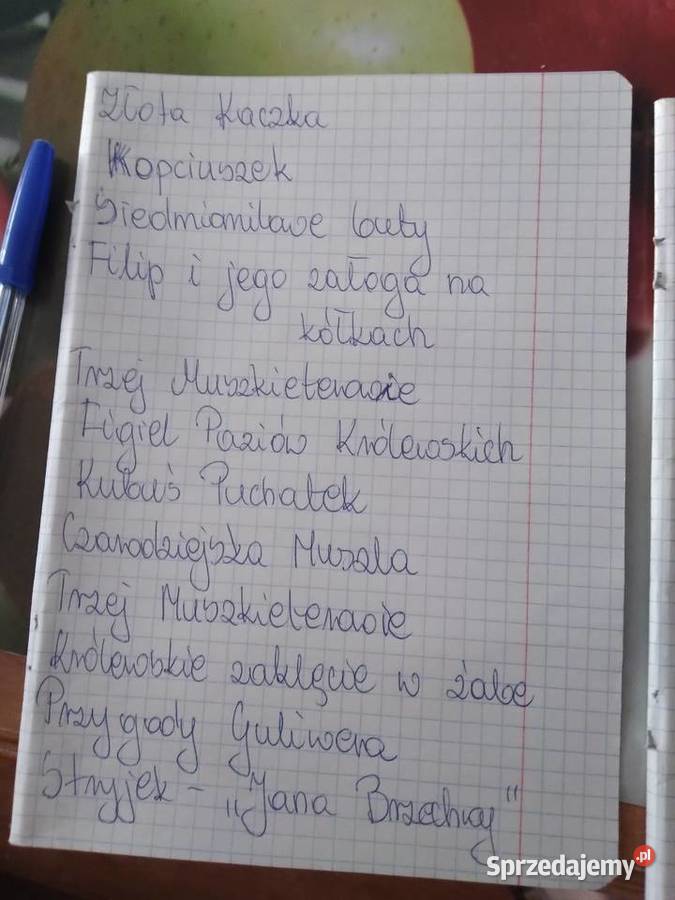 Złota Kaczka
Kopciuszek
Siedmiomilowe buty
Filip i jego załoga na
kółkach
Trzej Muszkieterowie
Figiel Paziów Królewskich
Kubuś Puchatek
Czarodziejska Muszla
Trzej Muszkieterowie
Królewskie zaklęcie w żabę
Przygody Guliwera
Stryjek - „Jana Brzechwy"
Sprzedajemy.pl